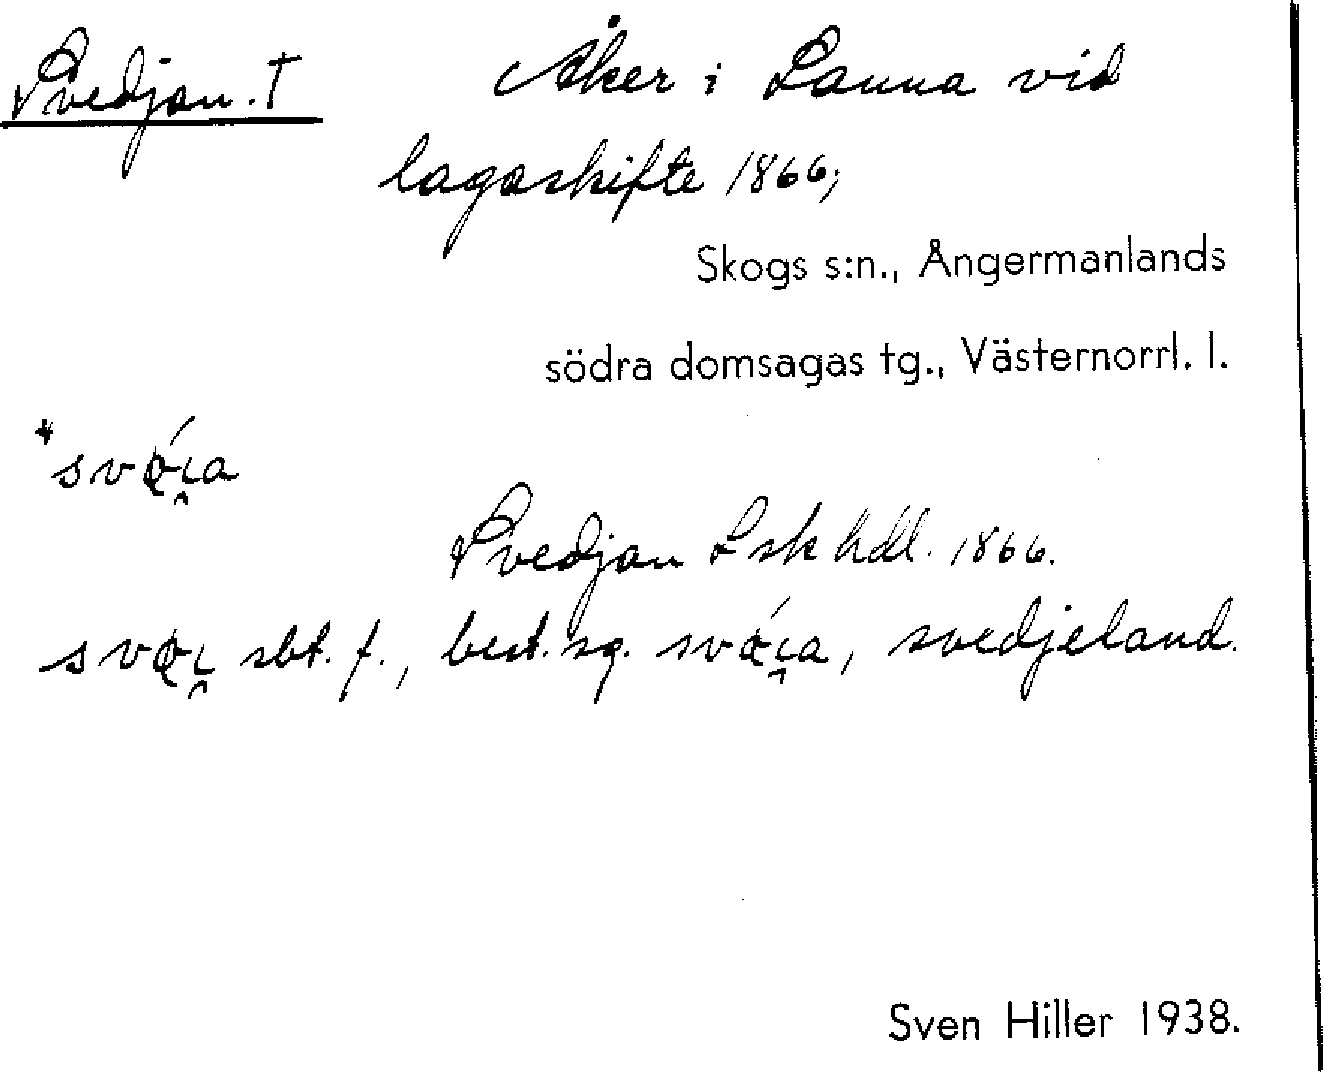 Svedjan. † Åker i Launa vid
lagaskifte 1866;
Skogs s:n., Ångermanlands
södra domsagas tg., Västernorrl. l.
Svedjan Lsk hdl. 1866.
sbt. f., best. sg. , svedjeland.
Sven Hiller 1938.